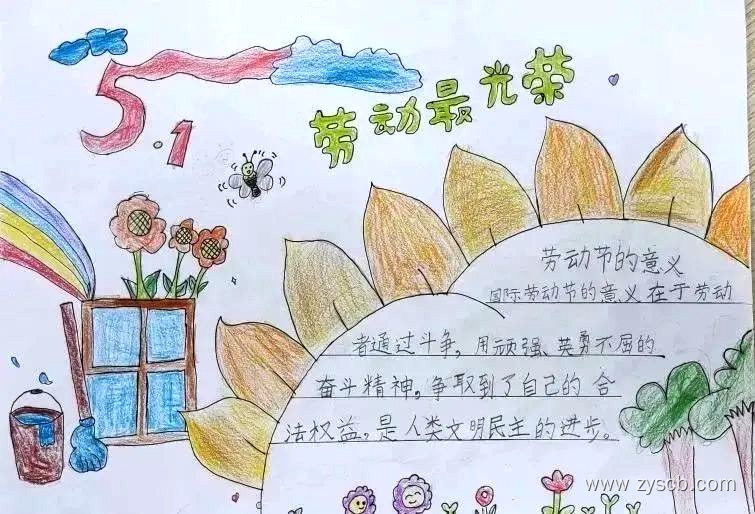 5.1
劳动最光荣
劳动节的意义
国际劳动节的意义在于劳动
者通过斗争,用顽强、英勇不屈的
奋斗精神,争取到了自己的合
法权益,是人类文明民主的进步。
www.zyscb.com